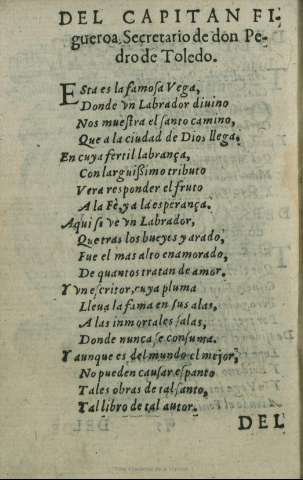 DEL CAPITAN FI-
gueroa, Secretario de don Pe-
dro de Toledo.
Esta es la famosa Vega,
Donde vn Labrador diuino
Nos muestra el santo camino,
Que a la ciudad de Dios llega.
En cuya fertil labrança,
Con larguissimo tributo
Vera responder el fruto
A la Fè, y a la esperança.
Aqui se ve vn Labrador,
Que tras los bueyes y arado,
Fue el mas alto enamorado,
De quantos tratan de amor.
Y vn escritor, cuya pluma
Lleua la fama en sus alas,
A las inmortales salas,
Donde nunca se consuma.
Y aunque es del mundo el mejor,
No pueden causar espanto
Tales obras de tal santo,
Y tal libro de tal autor.
DEL